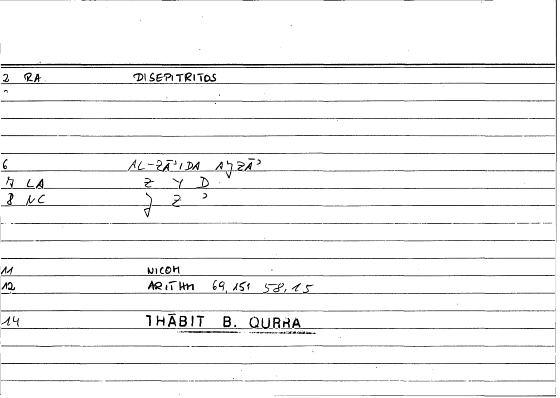 2 RA DISEPITRITOS
6 AL-ZĀʾIDA AǧZĀʾ
7 LA Z Y D
8 NC ǧ Z ʾ
11 NICOM
12 ARITHM 69,151 58,15
14 THĀBIT B. QURRA